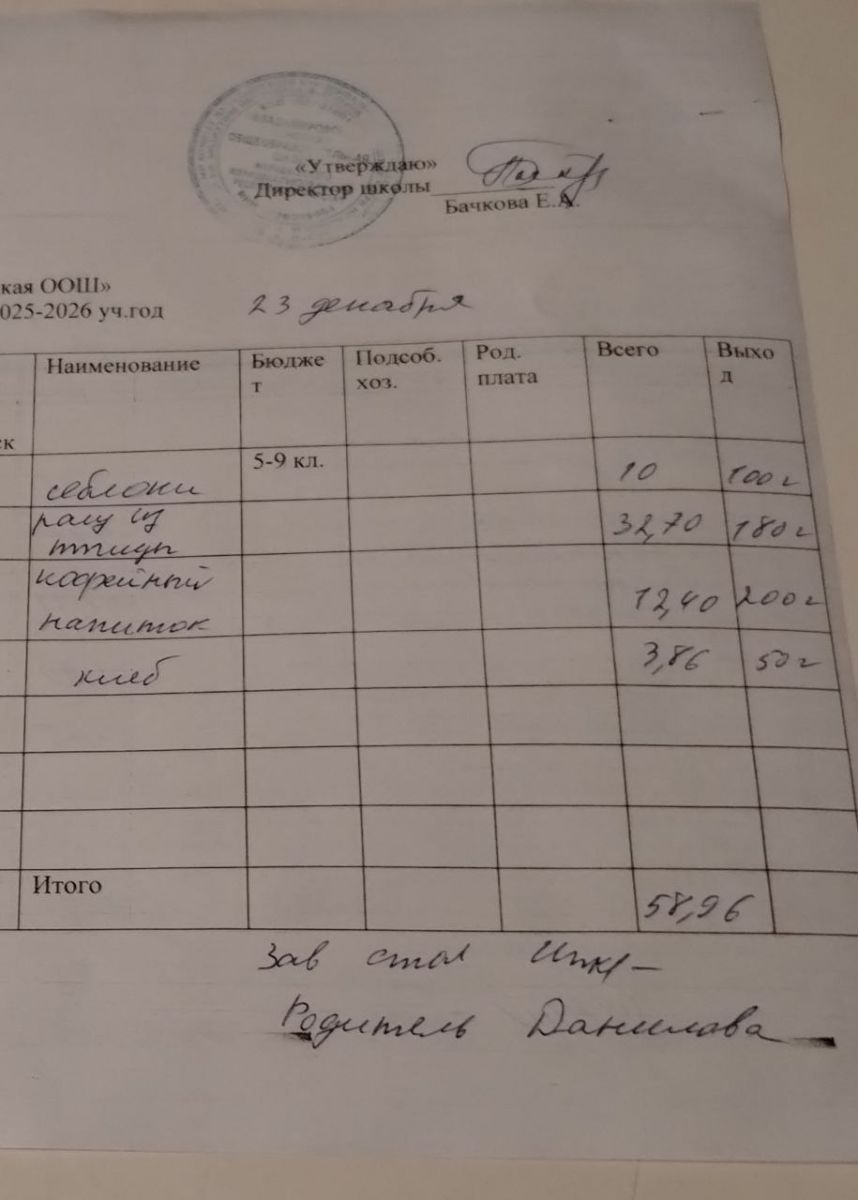 «Утверждаю»
Директор школы
Бачкова Е.А.
кая ООШ»
025-2026 уч.год 23 декабря
Наименование Бюдже Подсоб. Род. Всего Выхо
т хоз. плата д
ск
5-9 кл.
яблоки 10 100 г
рагу из
птицы 32,70 180 г
кофейный
напиток 12,40 200 г
хлеб 3,86 50 г
Итого 58,96
Зав стол
Родитель Данилова